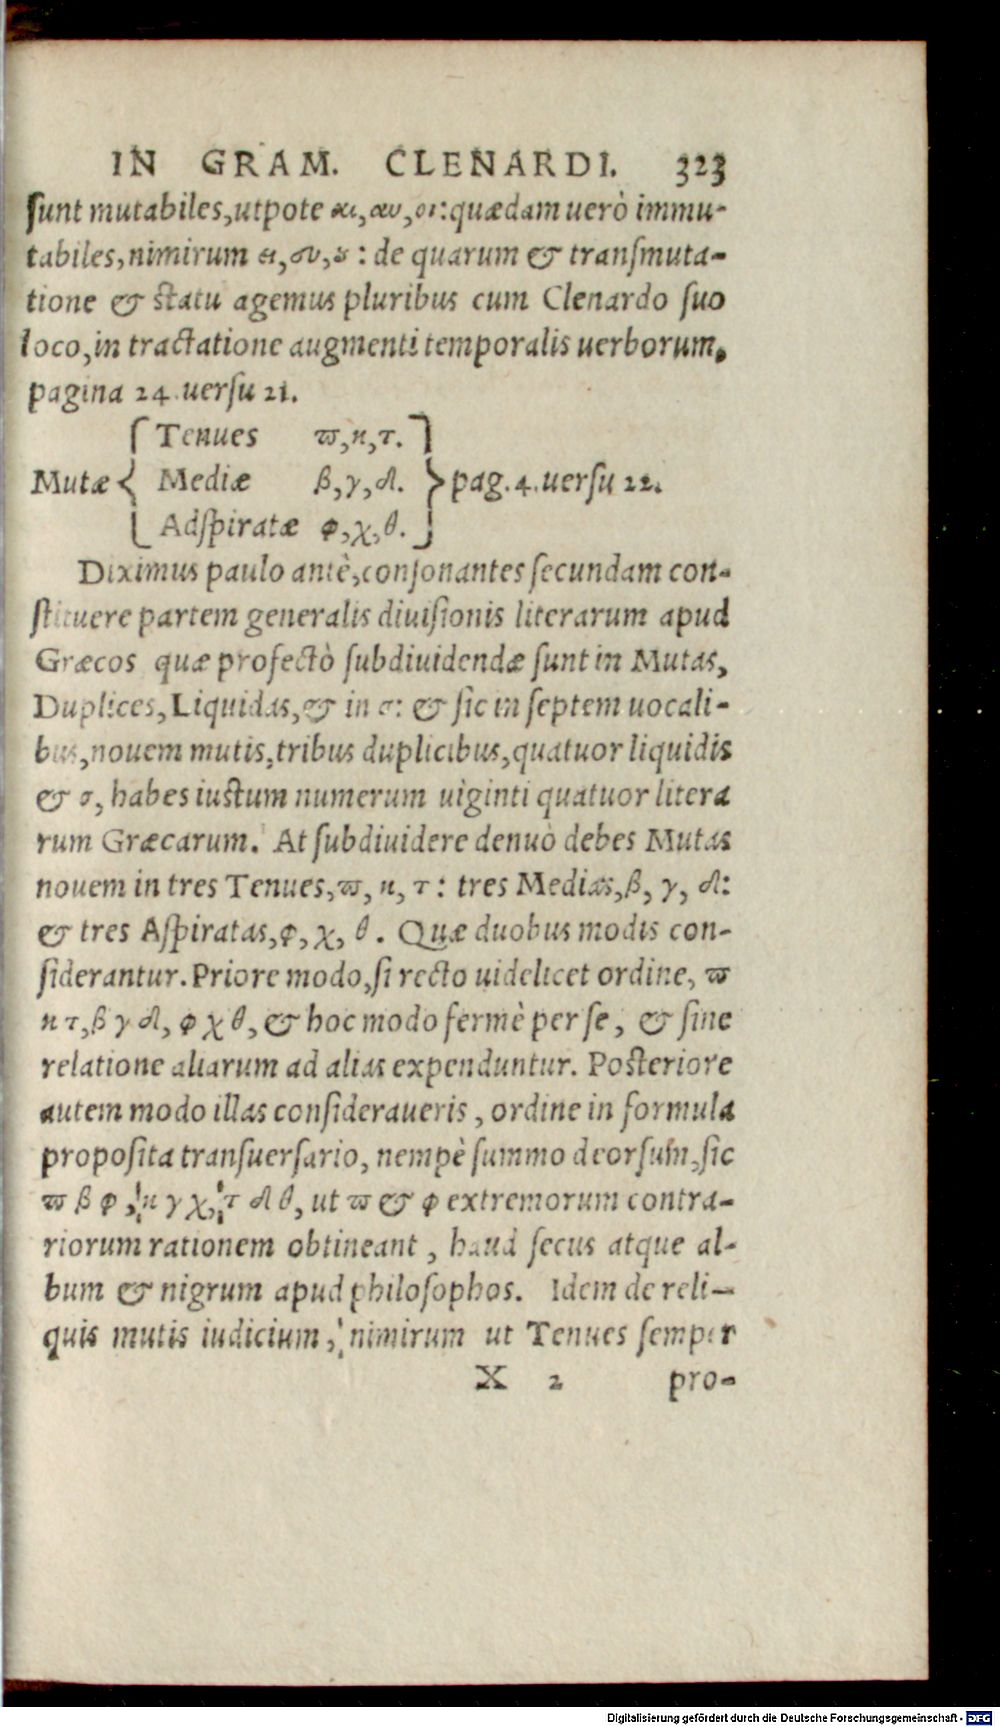 IN GRAM. CLENARDI. 323
ſunt mutabiles,utpote αι,αυ,οι:quædam uerò immu-
tabiles,nimirum ει,ευ,ου : de quarum & tranſmuta-
tione & statu agemus pluribus cum Clenardo ſuo
loco,in tractatione augmenti temporalis uerborum,
pagina 24.uerſu 21.
Tenues ϖ,κ,τ.
Mutæ { Mediæ β,γ,δ. } pag.4.uerſu 22.
Adſpiratæ φ,χ,θ.
Diximus paulo antè,conſonantes ſecundam con-
ſtituere partem generalis diuiſionis literarum apud
Græcos quæ profectò ſubdiuidendæ ſunt in Mutas,
Duplices, Liquidas,& in σ: & ſic in ſeptem uocali-
bus,nouem mutis,tribus duplicibus,quatuor liquidis
& σ, habes iustum numerum uiginti quatuor litera
rum Græcarum. At ſubdiuidere denuò debes Mutas
nouem in tres Tenues,ϖ, κ, τ : tres Medias,β, γ, δ:
& tres Aſpiratas,φ, χ, θ. Quæ duobus modis con-
ſiderantur. Priore modo,ſi recto uidelicet ordine, ϖ
κ τ,β γ δ, φ χ θ, & hoc modo fermè per ſe, & ſine
relatione aliarum ad alias expenduntur. Posteriore
autem modo illas conſideraueris, ordine in formula
propoſita tranſuerſario, nempè ſummo deorſum,ſic
ϖ β φ, κ γ χ, τ δ θ, ut ϖ & φ extremorum contra-
riorum rationem obtineant, haud ſecus atque al-
bum & nigrum apud philoſophos. Idem de reli-
quis mutis iudicium, nimirum ut Tenues ſemper
X 2 pro-
Digitalisierung gefördert durch die Deutsche Forschungsgemeinschaft - DFG